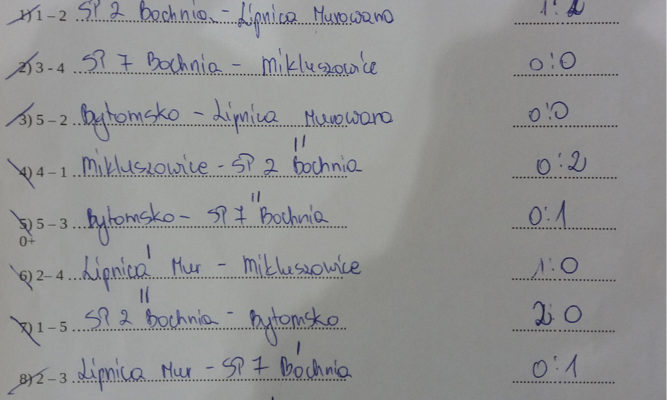 1) 1 – 2 SP 2 Bochnia - Lipnica Murowana 1:2
2) 3 - 4 SP 7 Bochnia - Mikluszowice 0:0
3) 5 – 2 Bytomsko - Lipnica Murowana 0:0
4) 4 – 1 Mikluszowice - SP 2 Bochnia 0:2
5) 5 – 3 Bytomsko - SP 7 Bochnia 0:1
0+
6) 2– 4 Lipnica Mur - Mikluszowice 1:0
7) 1 – 5 SP 2 Bochnia - Bytomsko 2:0
8) 2 – 3 Lipnica Mur - SP 7 Bochnia 0:1